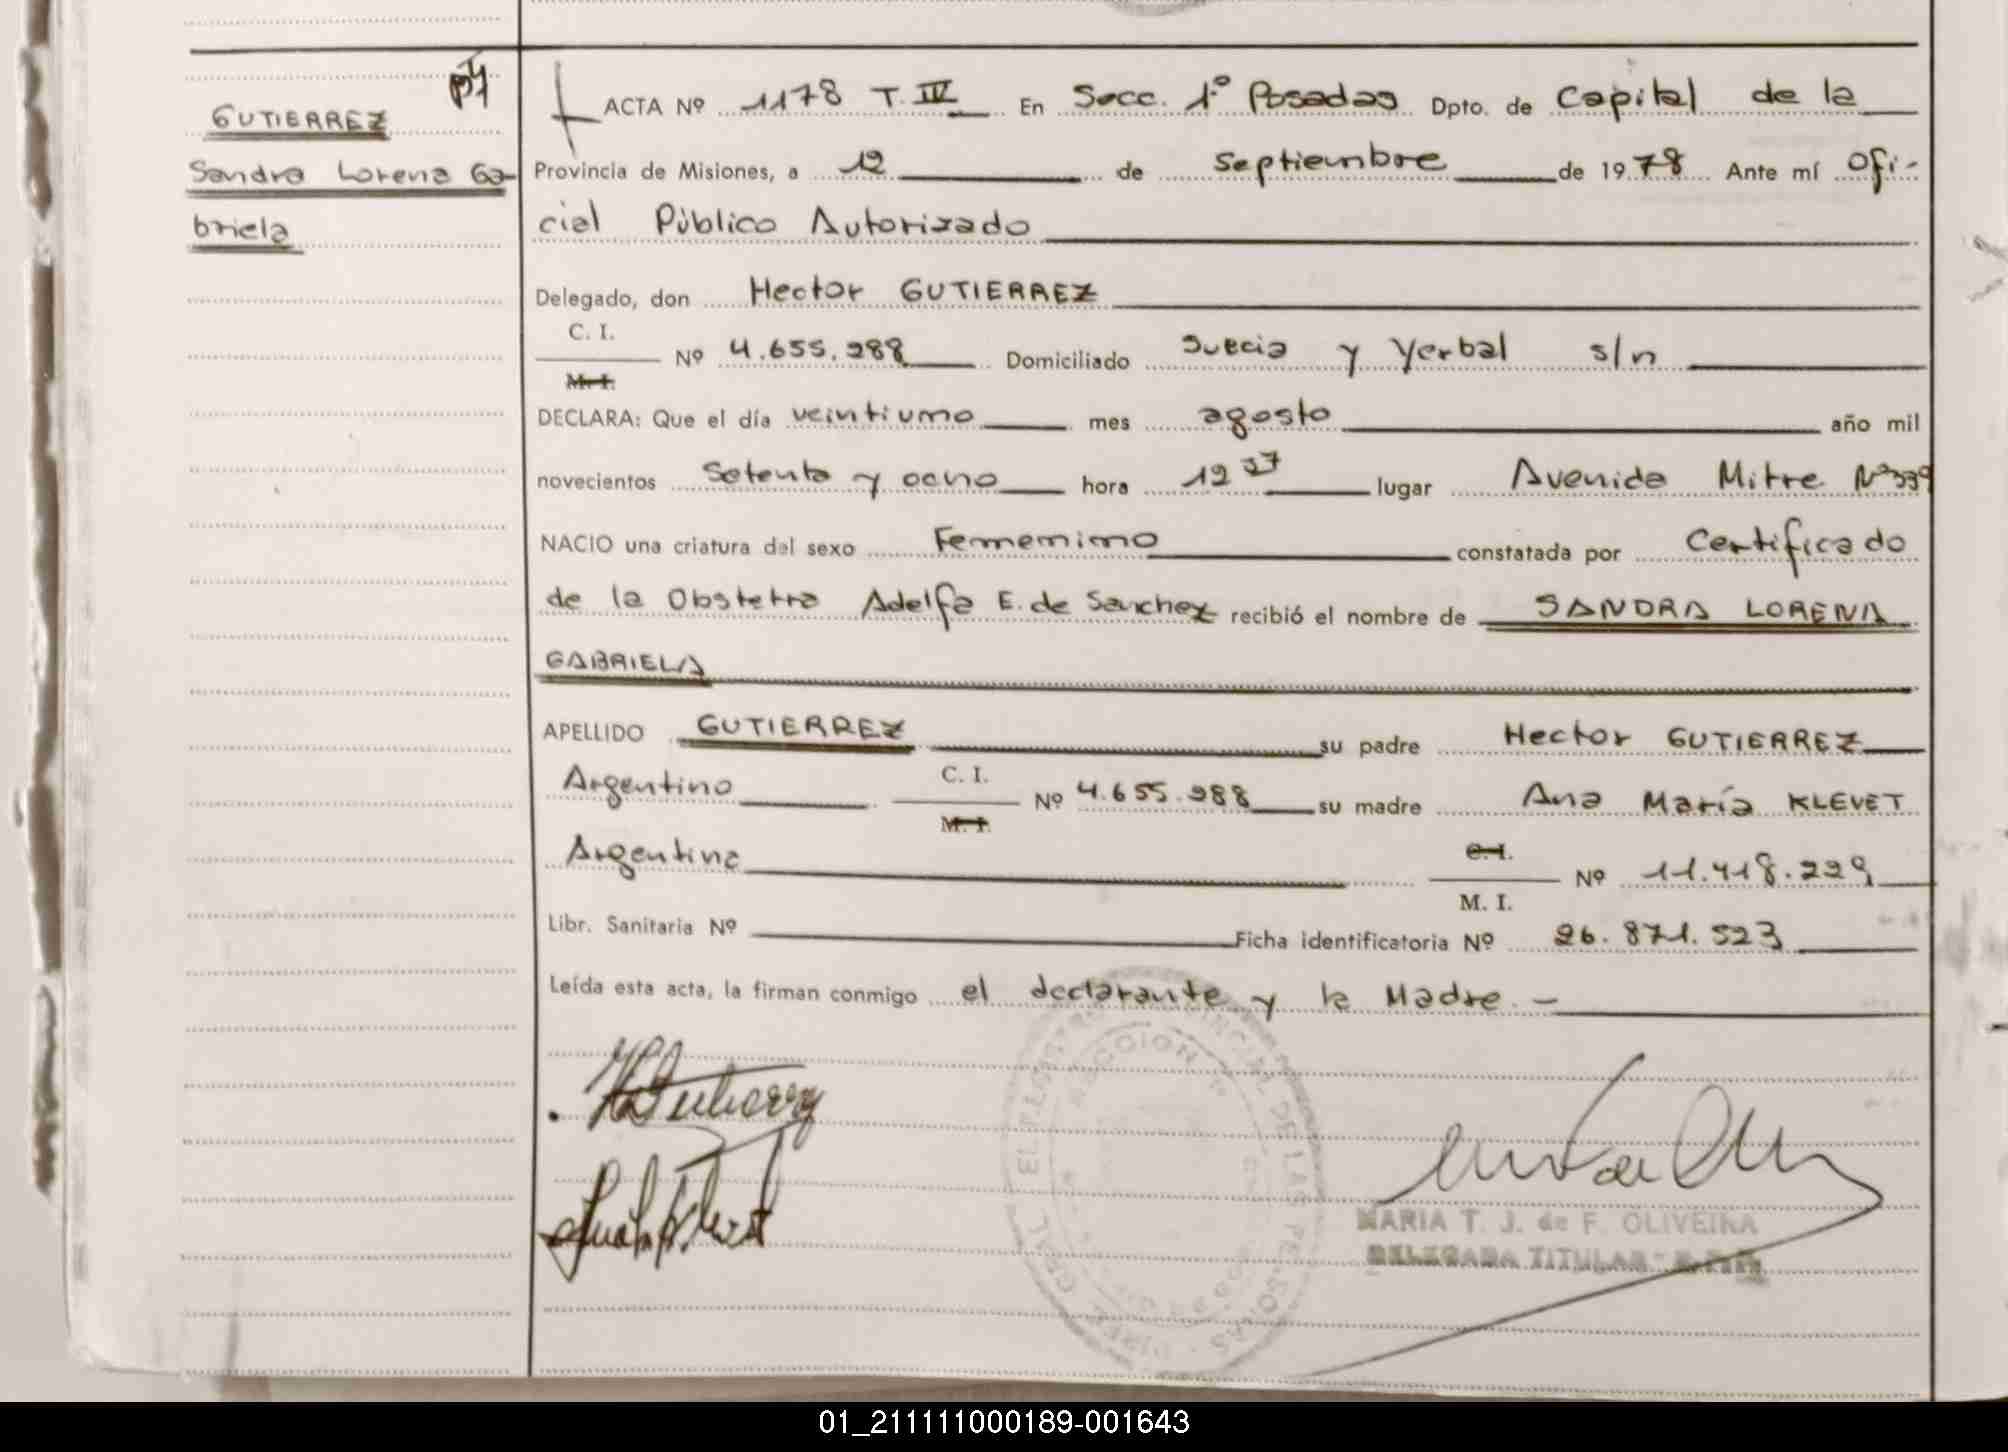 GUTIERREZ
Sandra Lorena Ga-
briela
ACTA Nº 1178 T. IV En Secc. 1º Posadas Dpto. de Capital de la
Provincia de Misiones, a 12 de Septiembre de 1978 Ante mí Ofi-
cial Público Autorizado
Delegado, don Hector GUTIERREZ
C. I.
M. I.
Nº 4.655.988 Domiciliado Suecia y Yerbal s/n
DECLARA: Que el día veintiuno mes agosto año mil
novecientos setenta y ocho hora 12 lugar Avenida Mitre Nº 339
NACIO una criatura del sexo Femenino constatada por Certificado
de la Obstetra Adelfa E. de Sanchez recibió el nombre de SANDRA LORENA
GABRIELA
APELLIDO GUTIERREZ su padre Hector GUTIERREZ
Argentino C. I. M. I. Nº 4.655.988 su madre Ana María KLEVET
Argentina C. I. M. I. Nº 11.418.229
Libr. Sanitaria Nº Ficha identificatoria Nº 26.871.523
Leída esta acta, la firman conmigo el declarante y la Madre. —
MARIA T. J. de F. OLIVEIRA
DELEGADA TITULAR
01_211111000189-001643